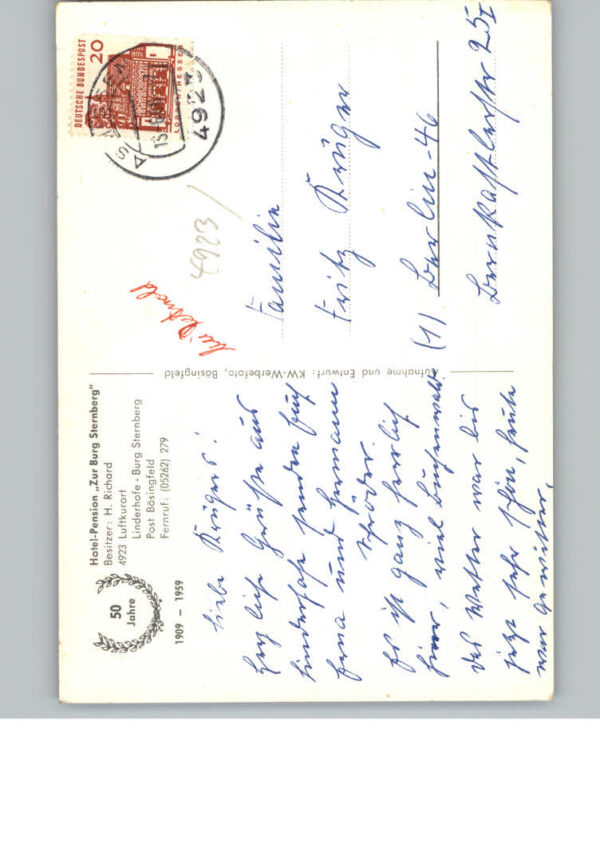 50
Jahre
1909 – 1959
Hotel-Pension „Zur Burg Sternberg"
Besitzer: H. Richard
4923 Luftkurort
Linderhofe - Burg Sternberg
Post Bösingfeld
Fernruf: (05262) 279
Liebe Krügers!
Herzliche Grüße aus
Linderhofe senden Euch
und Hermann
Schröder.
Es ist ganz herrlich
hier, viel Buchenwald
das Wetter war bis
jetzt sehr schön, heute
war Gewitter.
Aufnahme und Entwurf: KW-Werbefoto, Bösingfeld
bei Detmold
4923
DEUTSCHE BUNDESPOST
20
4923
Familie
Fritz Krüger
(1) Berlin-46
Bernkastlerstr 25 I